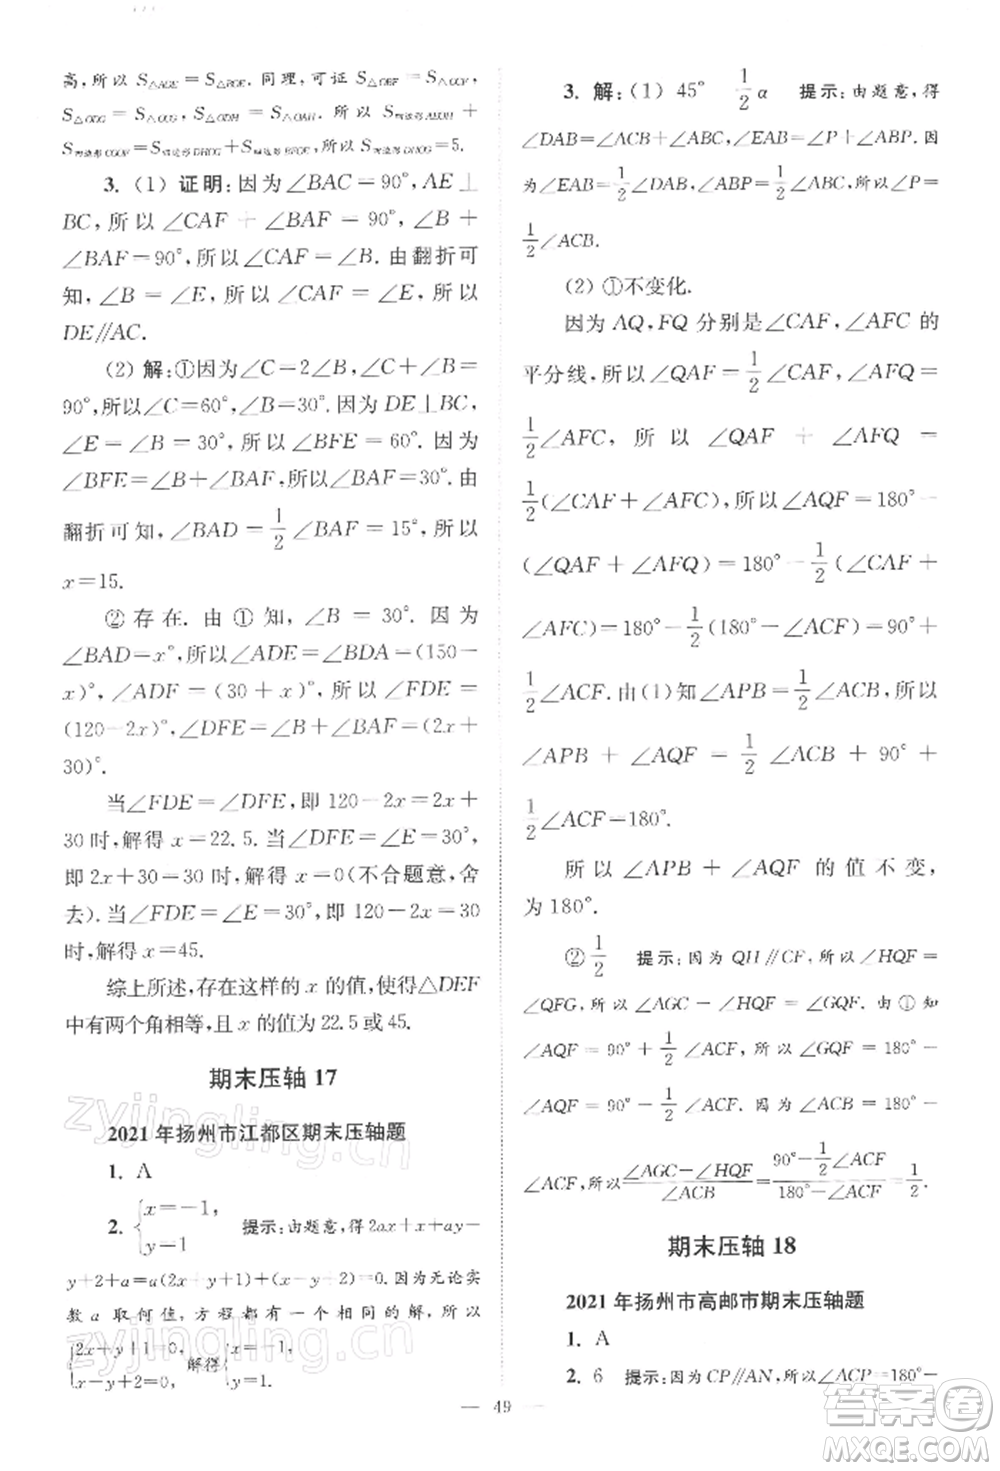 高,所以 S△AOE=S△BOE. 同理,可证 S△OBF=S△OCF,
S△ODG=S△OCG, S△ODH=S△OAH, 所以 S四边形AEOH +
S四边形CGOF=S四边形DHOG+S四边形BFOE,所以S四边形DHOG=5.
3. (1) 证明:因为∠BAC=90°,AE⊥
BC,所以∠CAF+∠BAF=90°,∠B+
∠BAF=90°,所以∠CAF=∠B. 由翻折可
知,∠B=∠E,所以∠CAF=∠E,所以
DE∥AC.
(2) 解:①因为∠C-2∠B,∠C+∠B=
90°,所以∠C=60°,∠B=30°. 因为DE⊥BC,
∠E=∠B=30°,所以∠BFE=60°. 因为
∠BFE=∠B+∠BAF,所以∠BAF=30°. 由
翻折可知,∠BAD=1/2∠BAF=15°,所以
x=15.
②存在. 由①知,∠B=30°. 因为
∠BAD=x°,所以∠ADE=∠BDA=(150-
x)°,∠ADF=(30+x)°,所以∠FDE=
(120-2x)°,∠DFE=∠B+∠BAF=(2x+
30)°.
当∠FDE=∠DFE,即120-2x=2x+
30时,解得x=22.5;当∠DFE=∠E=30°,
即2x+30-30时,解得x=0(不合题意,舍
去).当∠FDE=∠E=30°,即120-2x=30
时,解得x=45.
综上所述,存在这样的x的值,使得△DEF
中有两个角相等,且x的值为22.5或45.
期末压轴17
2021年扬州市江都区期末压轴题
1. A
2. {x=-1, y=1 提示:由题意,得2ax+ay-
y+2+a=a(2x+y+1)+(x-y+2)=0. 因为无论实
数a取何值,方程都有一个相同的解,所以
{2x+y+1=0, x-y+2=0, 解得{x=-1, y=1.
3. 解:(1) 45° 1/2α 提示:由题意,得
∠DAB=∠ACB+∠ABC,∠EAB=∠P+∠ABP. 因
为∠EAB=1/2∠DAB,∠ABP=1/2∠ABC,所以∠P=
1/2∠ACB.
(2) ①不变化.
因为AQ,FQ分别是∠CAF,∠AFC的
平分线,所以∠QAF=1/2∠CAF,∠AFQ=
1/2∠AFC,所以∠QAF+∠AFQ=
1/2(∠CAF+∠AFC),所以∠AQF=180°-
(∠QAF+∠AFQ)=180°-1/2(∠CAF+
∠AFC)=180°-1/2(180°-∠ACF)=90°+
1/2∠ACF. 由(1)知∠APB=1/2∠ACB,所以
∠APB+∠AQF=1/2∠ACB+90°+
1/2∠ACF=180°.
所以∠APB+∠AQF的值不变,
为180°.
②1/2 提示:因为QH∥CF,所以∠HQF=
∠QFG,所以∠AGC-∠HQF=∠GQF. 由①知
∠AQF=90°+1/2∠ACF,所以∠GQF=180°-
∠AQF=180°-(90°+1/2∠ACF)=90°-
1/2∠ACF. 因为∠ACB=180°-
∠ACF,所以(∠AGC-∠HQF)/∠ACB=(90°-1/2∠ACF)/(180°-∠ACF)=1/2.
期末压轴18
2021年扬州市高邮市期末压轴题
1. A
2. 6 提示:因为CP∥AN,所以∠ACP=180°-
— 49 —
zyjingling.cn
zyjingling.cn
作业精灵
MXQE.COM